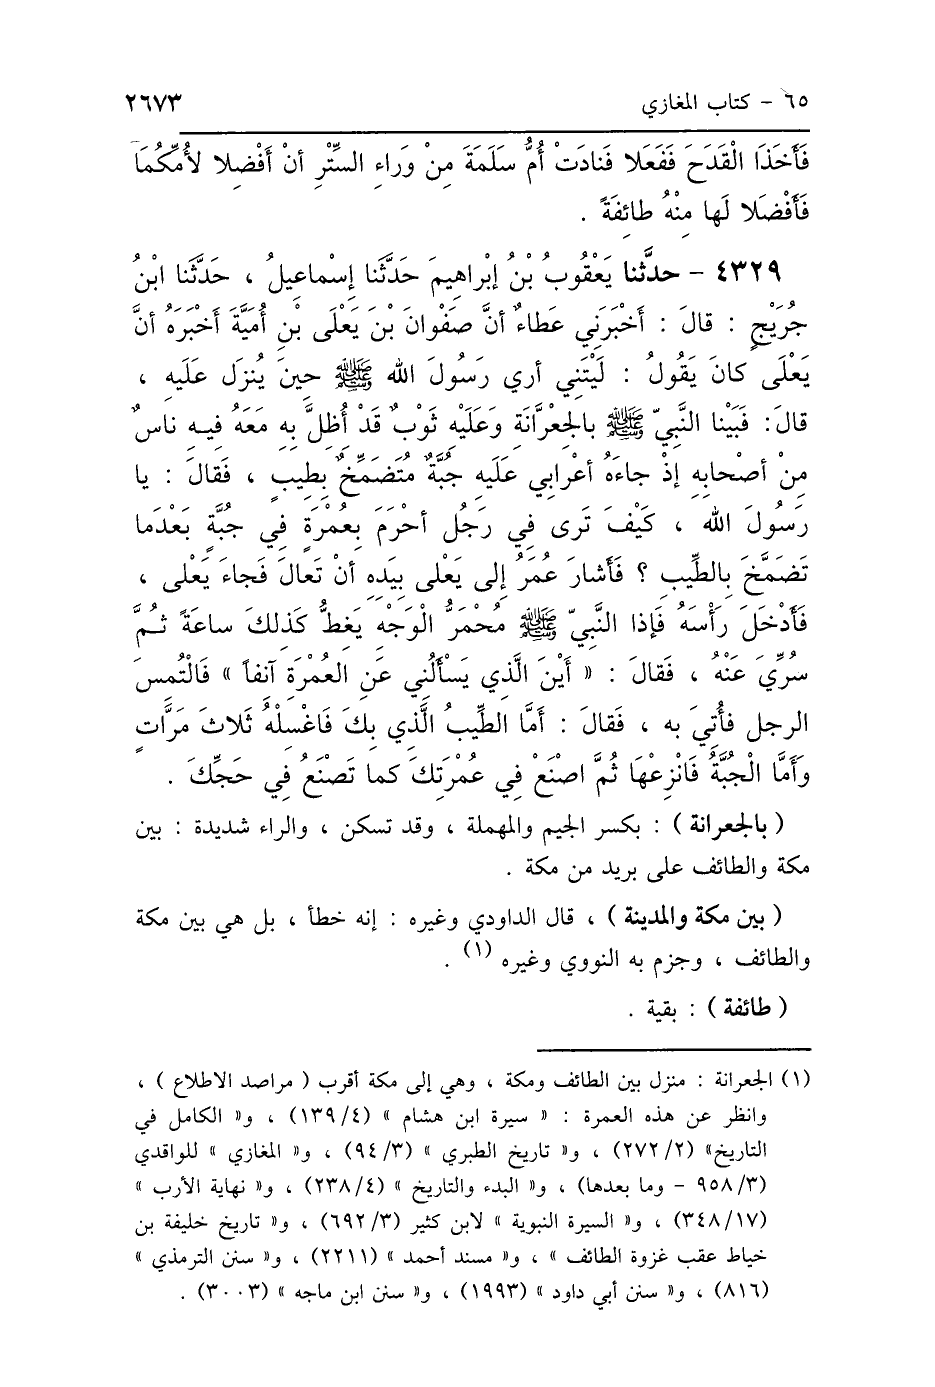 ٦٥ – كتاب المغازي ٢٦٧٣
فَأَخَذَا الْقَدَحَ فَفَعَلا فَنادَتْ أُمُّ سَلَمَةَ مِنْ وَراءِ السِّتْرِ أنْ أَفْضِلا لأُمِّكُمَا
فَأَفْضَلا لَها مِنْهُ طائِفَةً .
٤٣٢٩ – حدَّثنا يَعْقُوبُ بْنُ إبْراهِيمَ حَدَّثَنا إسْماعِيلُ ، حَدَّثَنا ابْنُ
جُرَيْجٍ : قالَ : أَخْبَرَنِي عَطاءٌ أنَّ صَفْوانَ بْنَ يَعْلَى بْنِ أُمَيَّةَ أَخْبَرَهُ أنَّ
يَعْلَى كانَ يَقُولُ : لَيْتَنِي أري رَسُولَ الله ﷺ حِينَ يُنزَل عَليَهِ ،
قالَ: فَبَيْنا النَّبِيّ ﷺ بالجِعْرَّانَةِ وَعَلَيْهِ ثَوْبٌ قَدْ أُظِلَّ بِهِ مَعَهُ فِيهِ ناسٌ
مِنْ أصْحابِهِ إذْ جاءَهُ أعْرابِي عَلَيهِ جُبَّةٌ مُتَضَمِّخٌ بِطِيبٍ ، فَقالَ : يا
رَسُولَ الله ، كَيْفَ تَرى فِي رَجُلٍ أحْرَمَ بِعُمْرَةٍ فِي جُبَّةٍ بَعْدَما
تَضَمَّخَ بِالطِّيبِ ؟ فَأَشارَ عُمَرُ إلى يَعْلى بِيَدِهِ أنْ تَعالَ فَجاءَ يَعْلى ،
فَأَدْخَلَ رَأْسَهُ فَإذا النَّبِيّ ﷺ مُحْمَرُّ الْوَجْهِ يَغِطُّ كَذلِكَ ساعَةً ثُمَّ
سُرِّيَ عَنْهُ ، فَقالَ : « أَيْنَ الَّذِي يَسْأَلُنِي عَنِ العُمْرَةِ آنفاً » فَالْتُمِسَ
الرجل فأُتِيَ به ، فَقالَ : أمَّا الطِّيبُ الَّذِي بِكَ فَاغْسِلْهُ ثَلاثَ مَرَّاتٍ
وَأَمَّا الْجُبَّةُ فَانْزِعْهَا ثُمَّ اصْنَعْ فِي عُمْرَتِكَ كما تَصْنَعُ فِي حَجِّكَ .
( بالجعرانة ) : بكسر الجيم والمهملة ، وقد تسكن ، والراء شديدة : بين
مكة والطائف على بريد من مكة .
( بين مكة والمدينة ) ، قال الداودي وغيره : إنه خطأ ، بل هي بين مكة
والطائف ، وجزم به النووي وغيره (١) .
( طائفة ) : بقية .
(١) الجعرانة : منزل بين الطائف ومكة ، وهي إلى مكة أقرب ( مراصد الاطلاع ) ،
وانظر عن هذه العمرة : « سيرة ابن هشام » (١٣٩/٤) ، و« الكامل في
التاريخ» (٢٧٢/٢) ، و« تاريخ الطبري » (٩٤/٣) ، و« المغازي » للواقدي
(٩٥٨/٣ – وما بعدها) ، و« البدء والتاريخ » (٢٣٨/٤) ، و« نهاية الأرب »
(٣٤٨/١٧) ، و« السيرة النبوية » لابن كثير (٦٩٢/٣) ، و« تاريخ خليفة بن
خياط عقب غزوة الطائف » ، و« مسند أحمد » (٢٢١١) ، و« سنن الترمذي »
(٨١٦) ، و« سنن أبي داود » (١٩٩٣) ، و« سنن ابن ماجه » (٣٠٠٣) .